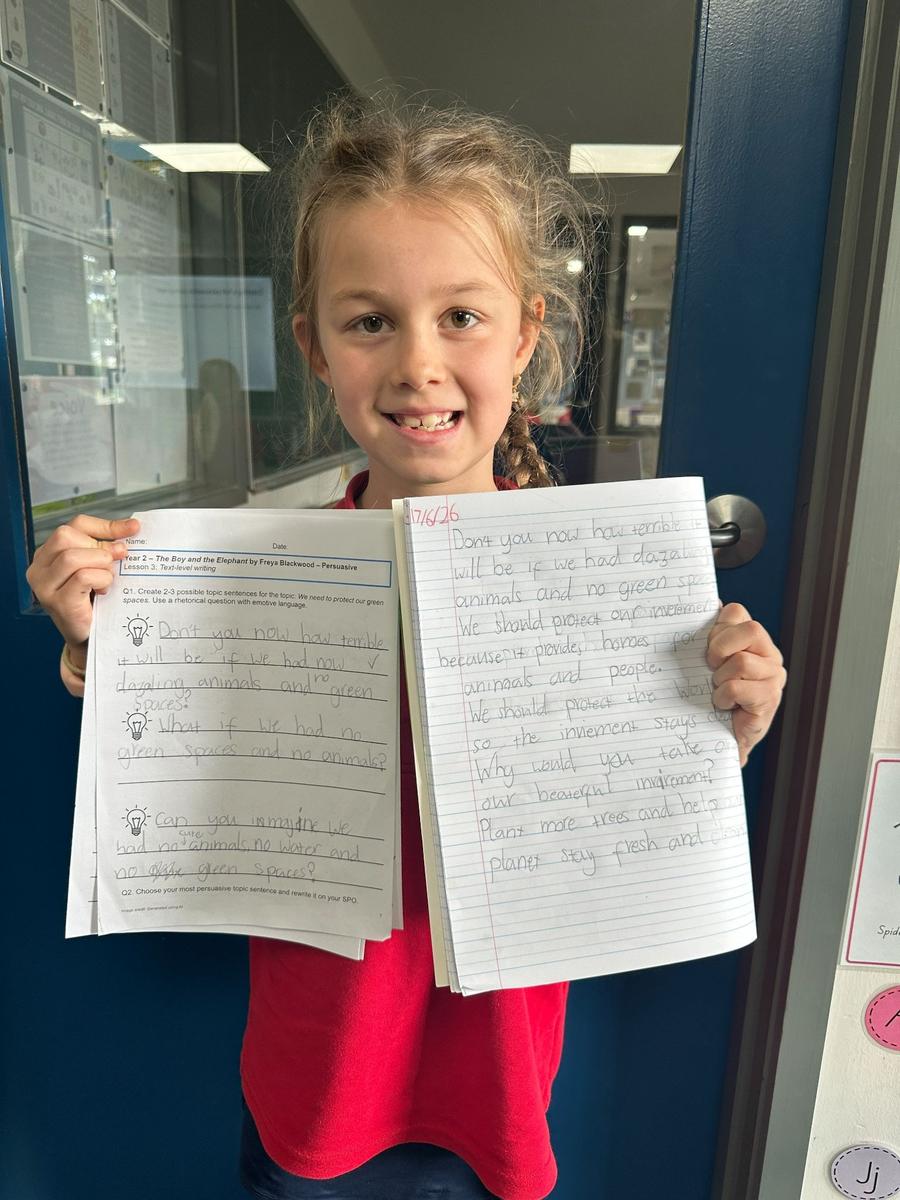 Name:
Date:
Year 2 – The Boy and the Elephant by Freya Blackwood – Persuasive
Lesson 3: Text-level writing
Q1. Create 2-3 possible topic sentences for the topic: We need to protect our green
spaces. Use a rhetorical question with emotive language.
Don't you now how terrible
it will be if we had now ✓
dazaling animals and no green
spaces?
What if we had no
green spaces and no animals?
Can you inmajine we
had no cute animals, no water and
no green spaces?
Q2. Choose your most persuasive topic sentence and rewrite it on your SPO.
Image credit: Generated using AI
17/6/26
Don't you now how terrible it
will be if we had dazaling
animals and no green
We should protect our
because it provides homes for
animals and people.
We should protect the
so the invierment stays
Why would you take
our beaterful invirement?
Plant more trees and help
planet stay fresh and
VOICE
Jj